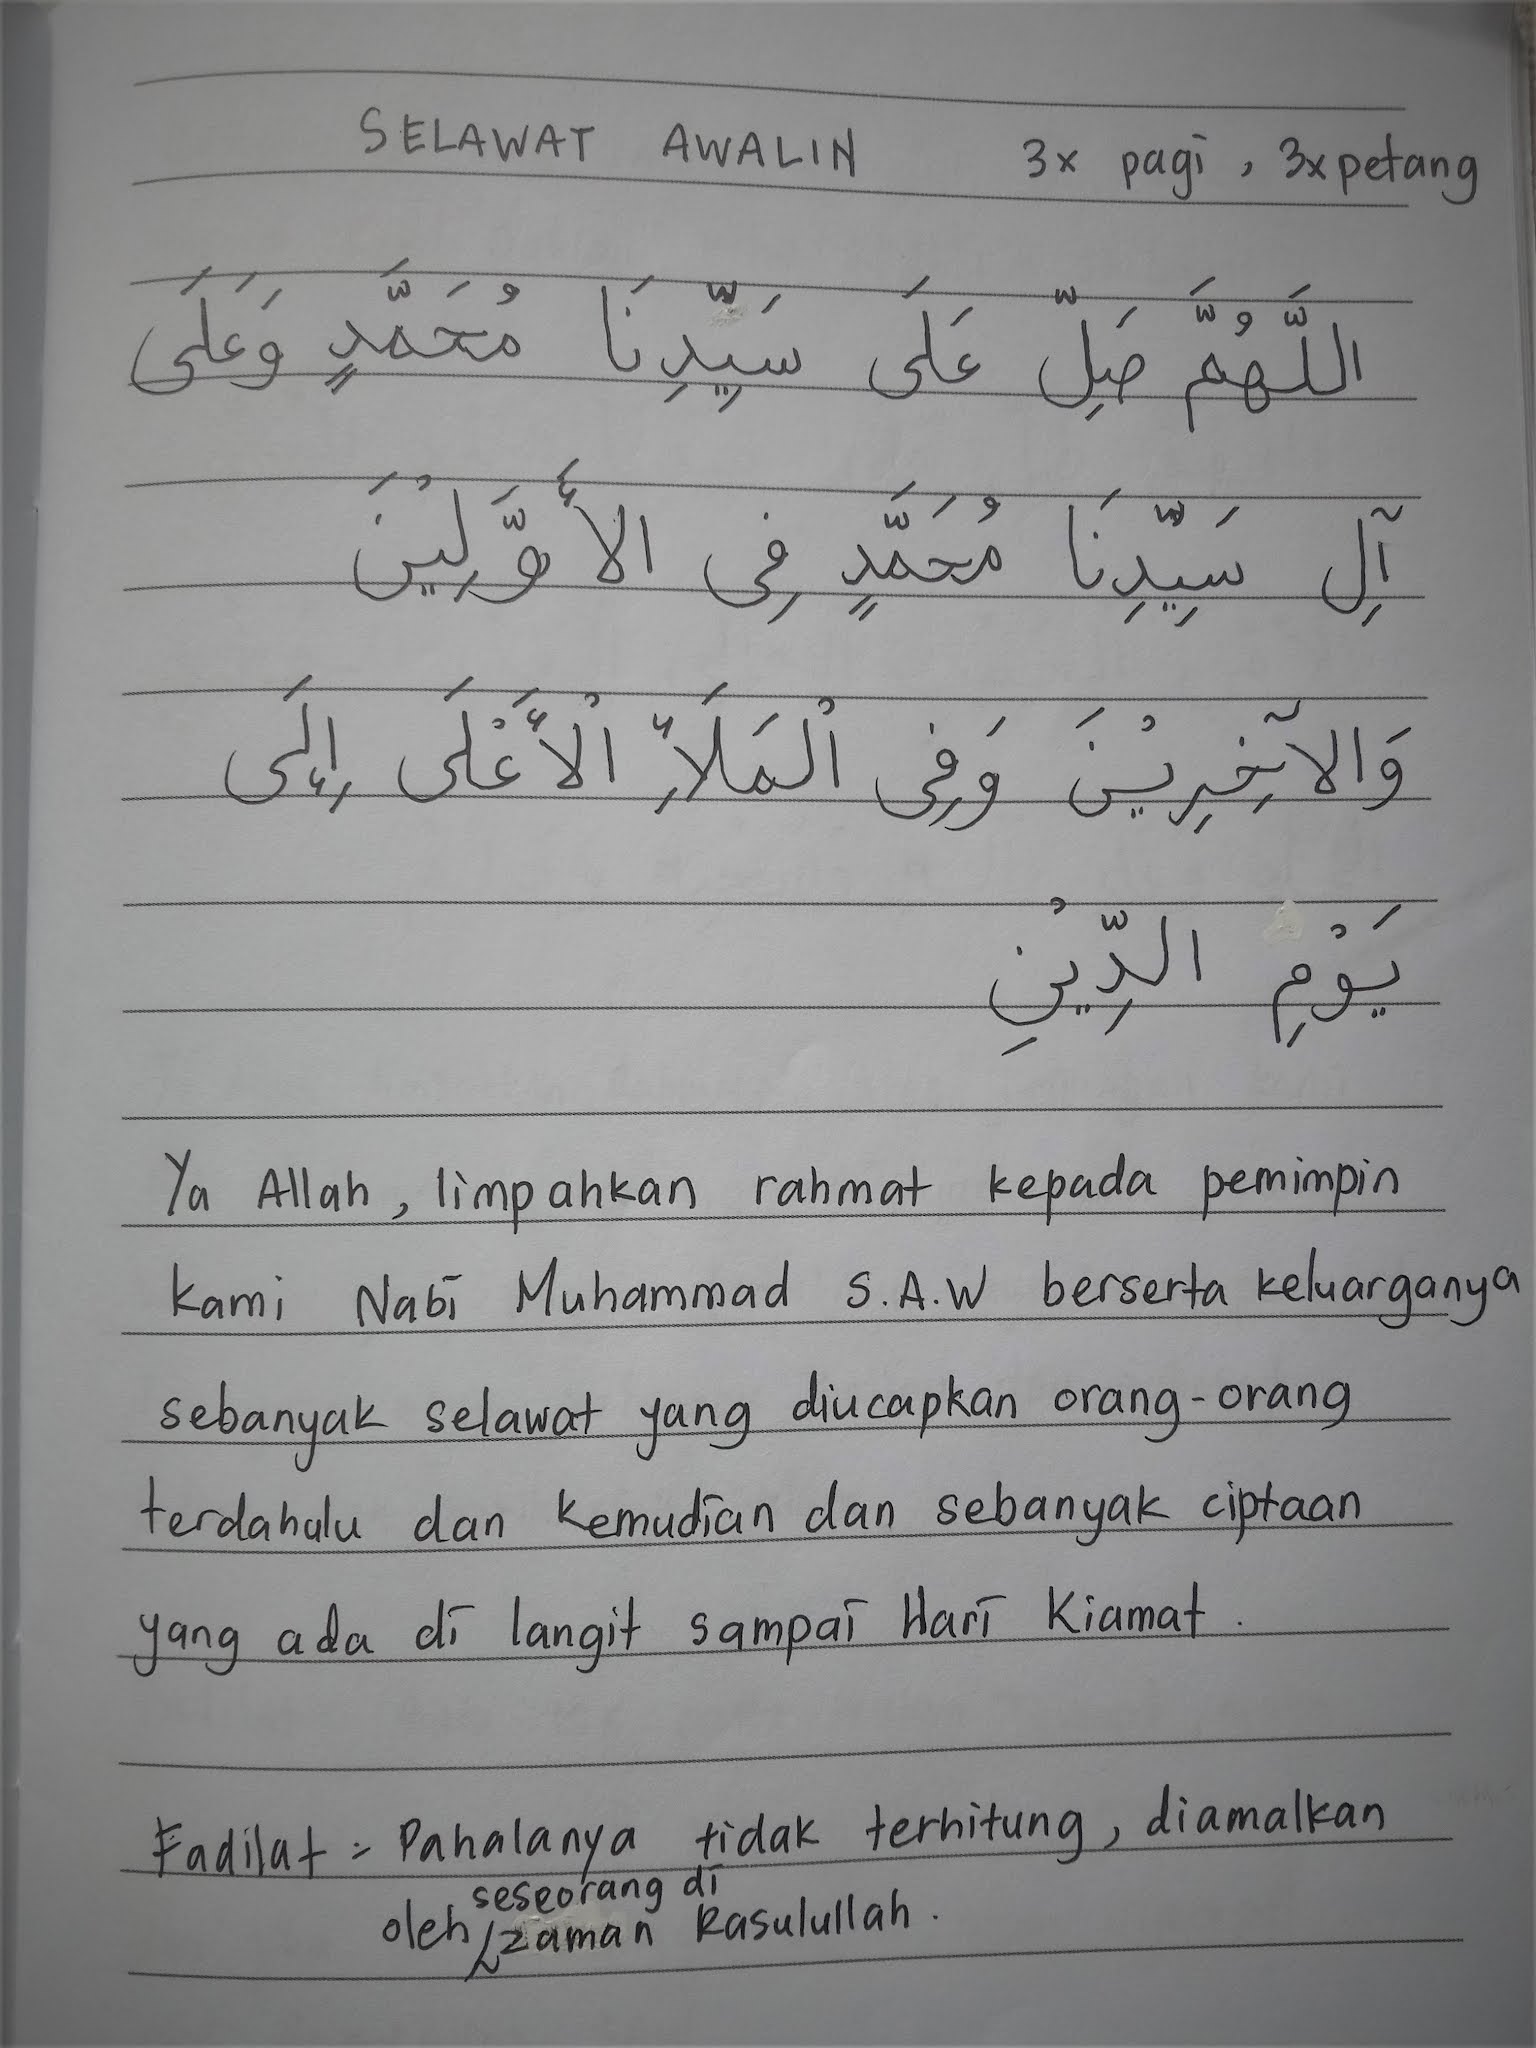 SELAWAT AWALIN 3x pagi, 3x petang
اللَّهُمَّ صَلِّ عَلَى سَيِّدِنَا مُحَمَّدٍ وَعَلَى
آلِ سَيِّدِنَا مُحَمَّدٍ فِى الأَوَّلِيْنَ
وَالآخِرِيْنَ وَفِى الْمَلَأِ الْأَعْلَى إِلَى
يَوْمِ الدِّيْنِ
Ya Allah, limpahkan rahmat kepada pemimpin
kami Nabi Muhammad S.A.W berserta keluarganya
sebanyak selawat yang diucapkan orang-orang
terdahulu dan kemudian dan sebanyak ciptaan
yang ada di langit sampai Hari Kiamat.
Fadilat = Pahalanya tidak terhitung, diamalkan
oleh seseorang di zaman Rasulullah.